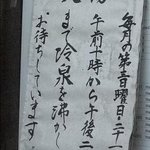 毎月の第 音曜日・二一
午前十時から午後二
まで冷泉を沸か
お待ちしています